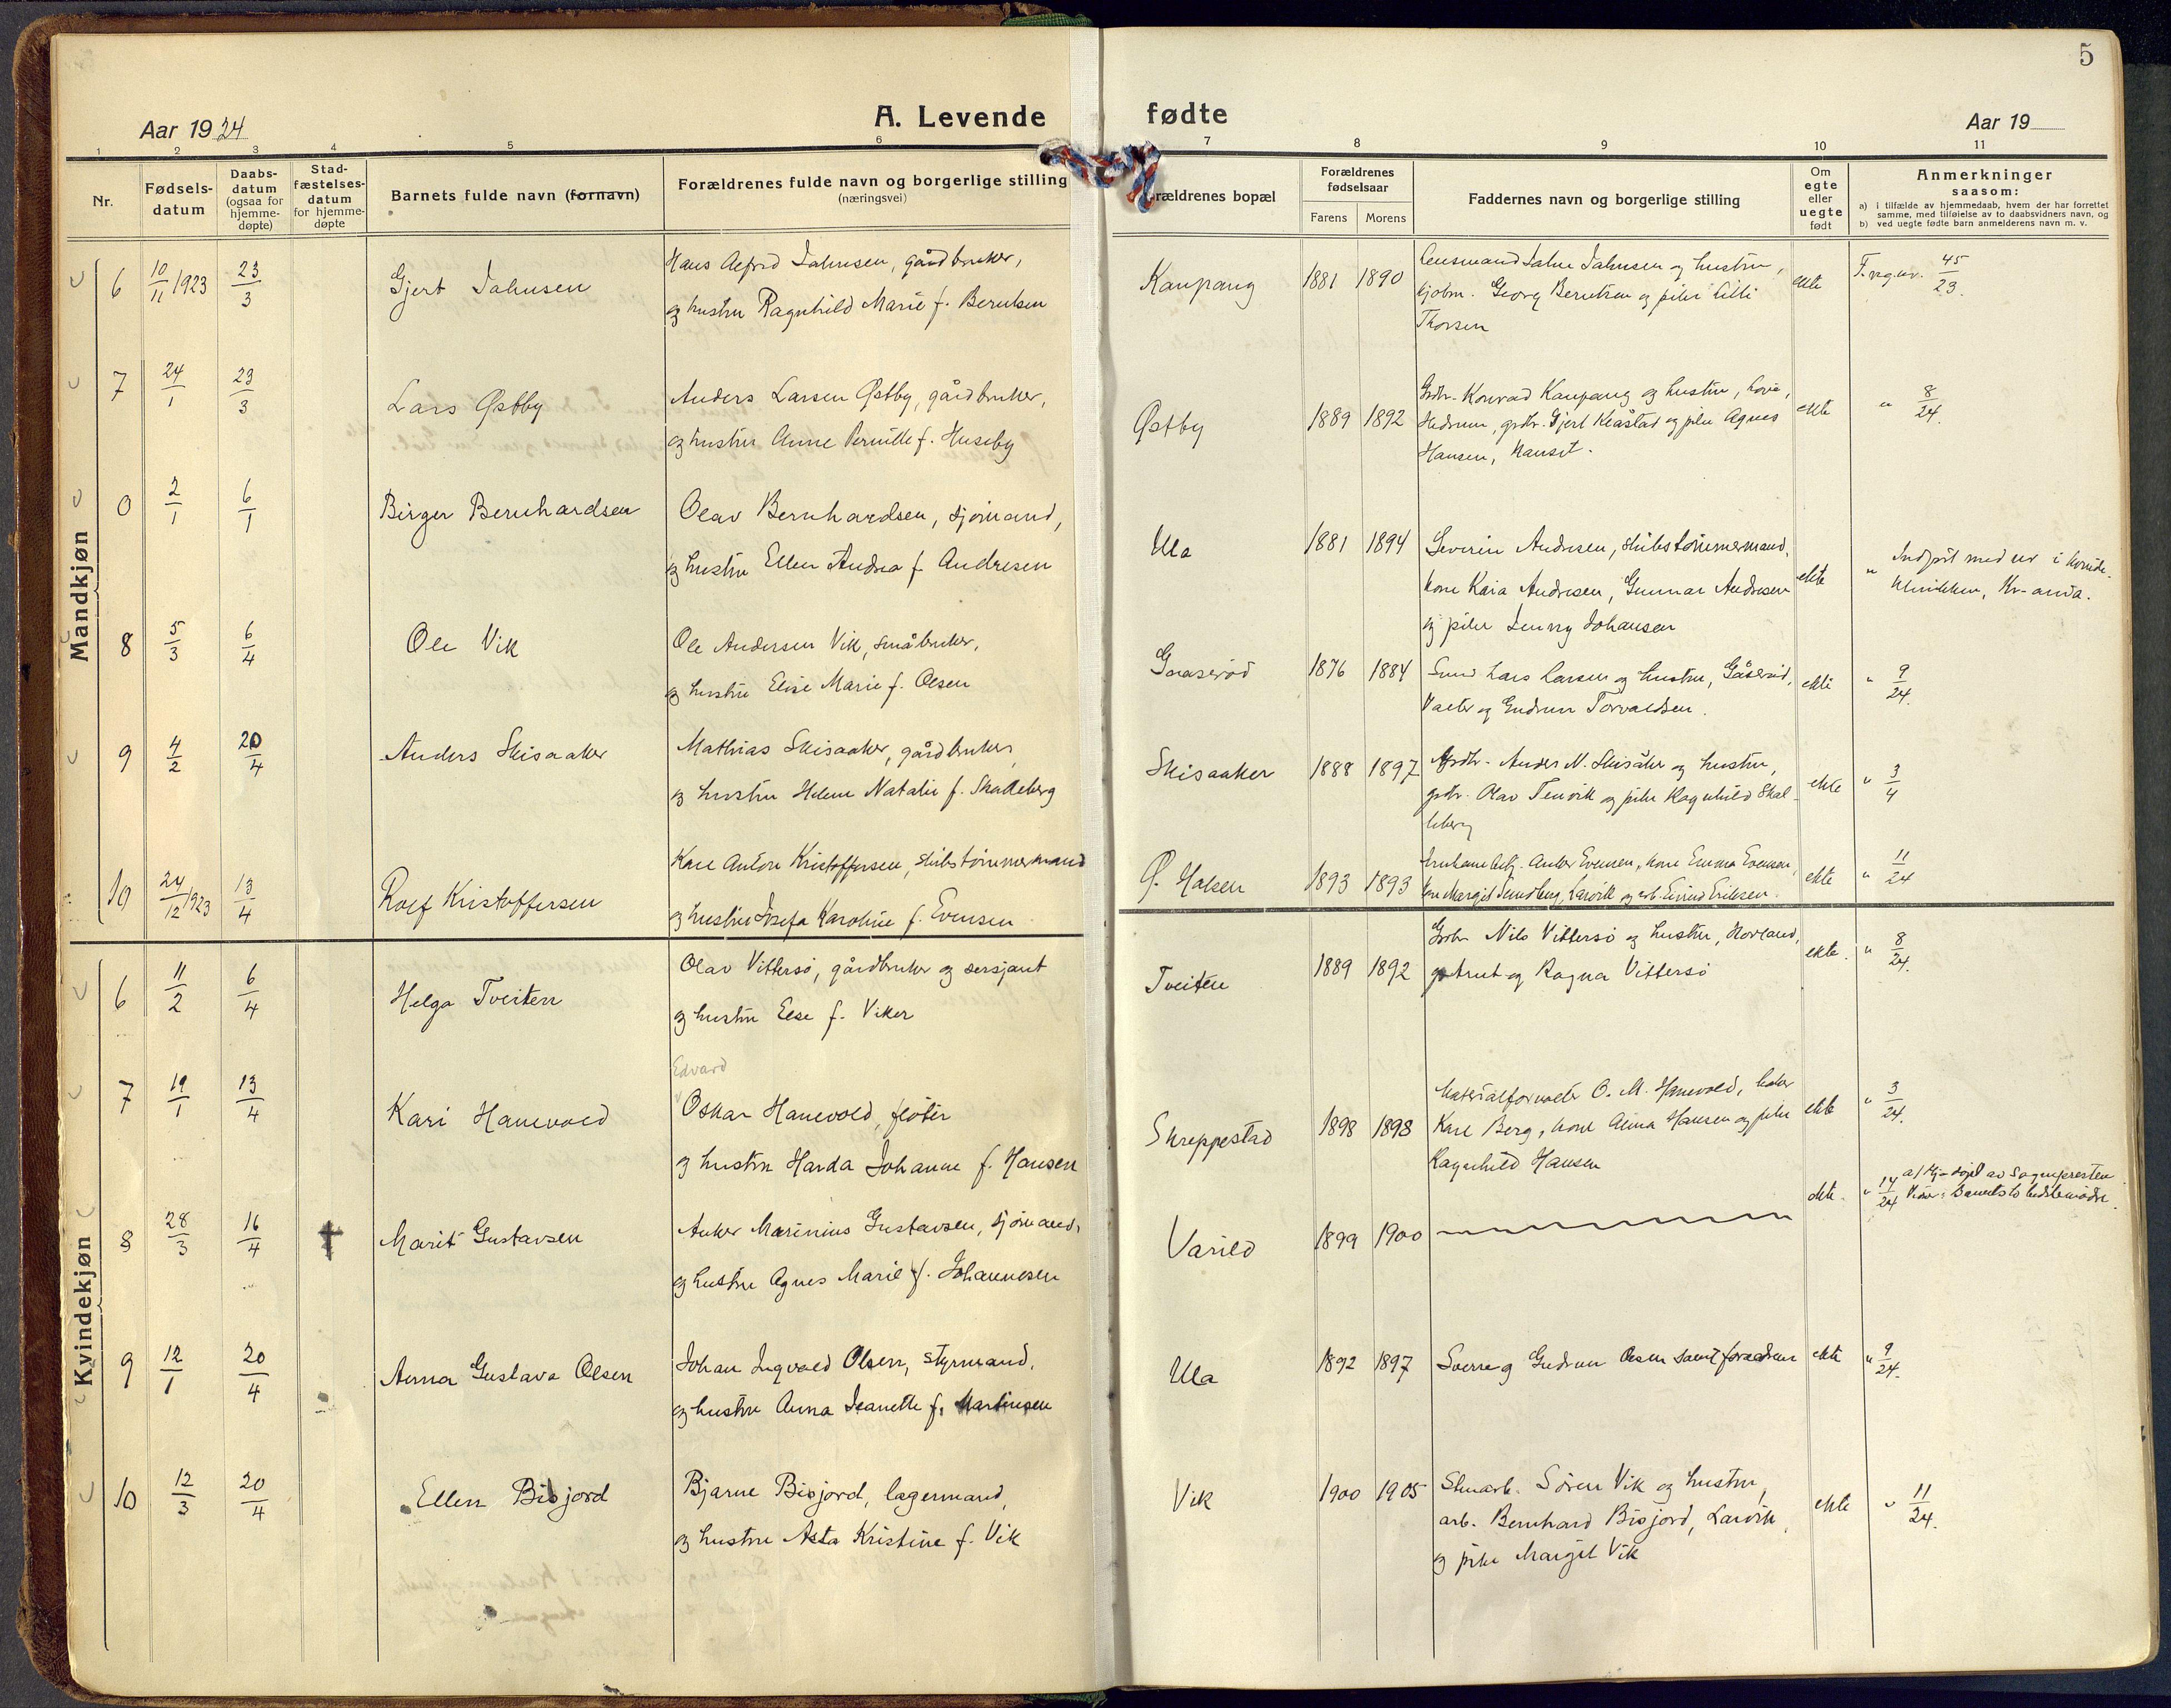 5
Aar 1924
A. Levende fødte
Aar 19
1 2 3 4 5 6 7 8 9 10 11
Nr.
Fødsels-
datum
Daabs-
datum
(ogsaa for
hjemme-
døpte)
Stad-
fæstelses-
datum
for hjemme-
døpte
Barnets fulde navn (fornavn)
Forældrenes fulde navn og borgerlige stilling
(næringsvei)
rældrenes bopæl
Forældrenes
fødselsaar
Farens Morens
Faddernes navn og borgerlige stilling
Om
egte
eller
uegte
født
Anmerkninger
saasom:
a) i tilfælde av hjemmedaab, hvem der har forrettet
samme, med tilføielse av to daabsvidners navn, og
b) ved uegte fødte barn anmelderens navn m. v.
Mandkjøn
6 10/11 1923 23/3 Gjert Jahnsen
Hans Alfred Jahnsen, gårdbruker,
og hustru Ragnhild Marie f. Berntsen
Kaupang 1881 1890
Lensmand Jahn Jahnsen og hustru,
Georg Berntsen og pike Lilli
Thorsen
ekte 45/23.
7 24/1 23/3 Lars Østby
Anders Larsen Østby, gårdbruker,
og hustru Anne Pernille f. Huseby
Østby 1889 1892
Grdbr. Konrad Kaupang og hustru,
Hedrum, grdbr. Gjert Klåstad og pike Agnes
Hansen, Nanset.
ekte " 8/24.
0 2/1 6/1 Birger Bernhardsen
Olav Bernhardsen, sjømand,
og hustru Ellen Andrea f. Andresen
Ula 1881 1894
Severin Andresen, skibstømmermand,
kone Kaia Andresen, Gunnar Andresen
og pike Jenny Johansen
ekte " Indført med nr i kvinde-
klinikken, Kr-ania.
8 5/3 6/4 Ole Vik
Ole Andersen Vik, småbruker,
og hustru Elise Marie f. Olsen
Gaaserød 1876 1884
Lars Larsen og hustru, Gåserød,
Valter og Gudrun Torvaldsen.
ekte " 9/24.
9 4/2 20/4 Anders Skisaaker
Mathias Skisaaker, gårdbruker,
og hustru Helene Natalie f. Skalleberg
Skisaaker 1888 1897
Grdbr. Anders N. Skisåker og hustru,
grdbr. Olav Tenvik og pike Ragnhild Skal-
leberg
ekte " 3/4
10 24/12 1923 13/4 Rolf Kristoffersen
Karl Anton Kristoffersen, skibstømmermand
og hustru Josefa Karoline f. Evensen
Ø. Halsen 1893 1893
Anker Evensen, kone Emma Evensen,
kone Margit Sundberg, Larvik og arb. Eivind Eriksen.
ekte " 11/24
Kvindekjøn
6 11/2 6/4 Helga Tveiten
Olav Vittersø, gårdbruker og sersjant
og hustru Else f. Viker
Tveiten 1889 1892
Grdbr Nils Vittersø og hustru,
Knut og Ragna Vittersø
ekte. " 8/24.
Edvard
7 19/1 13/4 Kari Hanevold
Oskar Hanevold, fløter
og hustru Harda Johanne f. Hansen
Skreppestad 1898 1898
Materialforvalter O. M. Hanevold, baker
Karl Berg, kone Alma Hansen og pike
Ragnhild Hansen
ekte " 3/24.
8 28/3 16/4 † Marit Gustavsen
Anker Marinius Gustavsen, sjømand,
og hustru Agnes Marie f. Johannesen
Varild 1899 1900
ekte. " 14/24 a) Hj-døpt av Sognepresten
Vidner: Barnets to bestemødre.
9 12/1 20/4 Anna Gustava Olsen
Johan Ingvald Olsen, styrmand,
og hustru Anna Jeanette f. Martinsen
Ula 1892 1897
Sverre og Gudrun Olsen samt forældrene
ekte " 9/24.
10 12/3 20/4 Ellen Bisjord
Bjarne Bisjord, lagermand,
og hustru Asta Kristine f. Vik
Vik 1900 1905
Stenarb. Søren Vik og hustru,
arb. Bernhard Bisjord, Larvik,
og pike Margit Vik
ekte " 11/24.